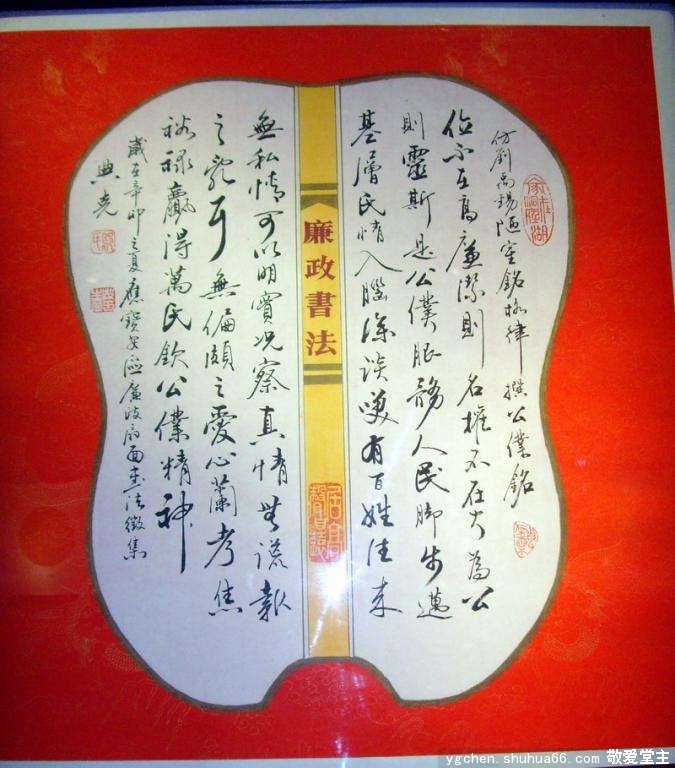 仿劉禹錫陋室銘格律撰公僕銘
位不在高廉潔則名權不在大為公
則靈斯是公僕服務人民脚步邁
基層民情入腦深談笑有百姓往來
無私情可以明實况察真情無謊報
之亂耳無偏頗之愛心蘭考焦
裕禄贏得萬民欽公僕精神
歲在辛卯之夏應寶安區廉政扇面書法徵集
典堯
廉政書法
ygchen.shuhua66.com 敬爱堂主